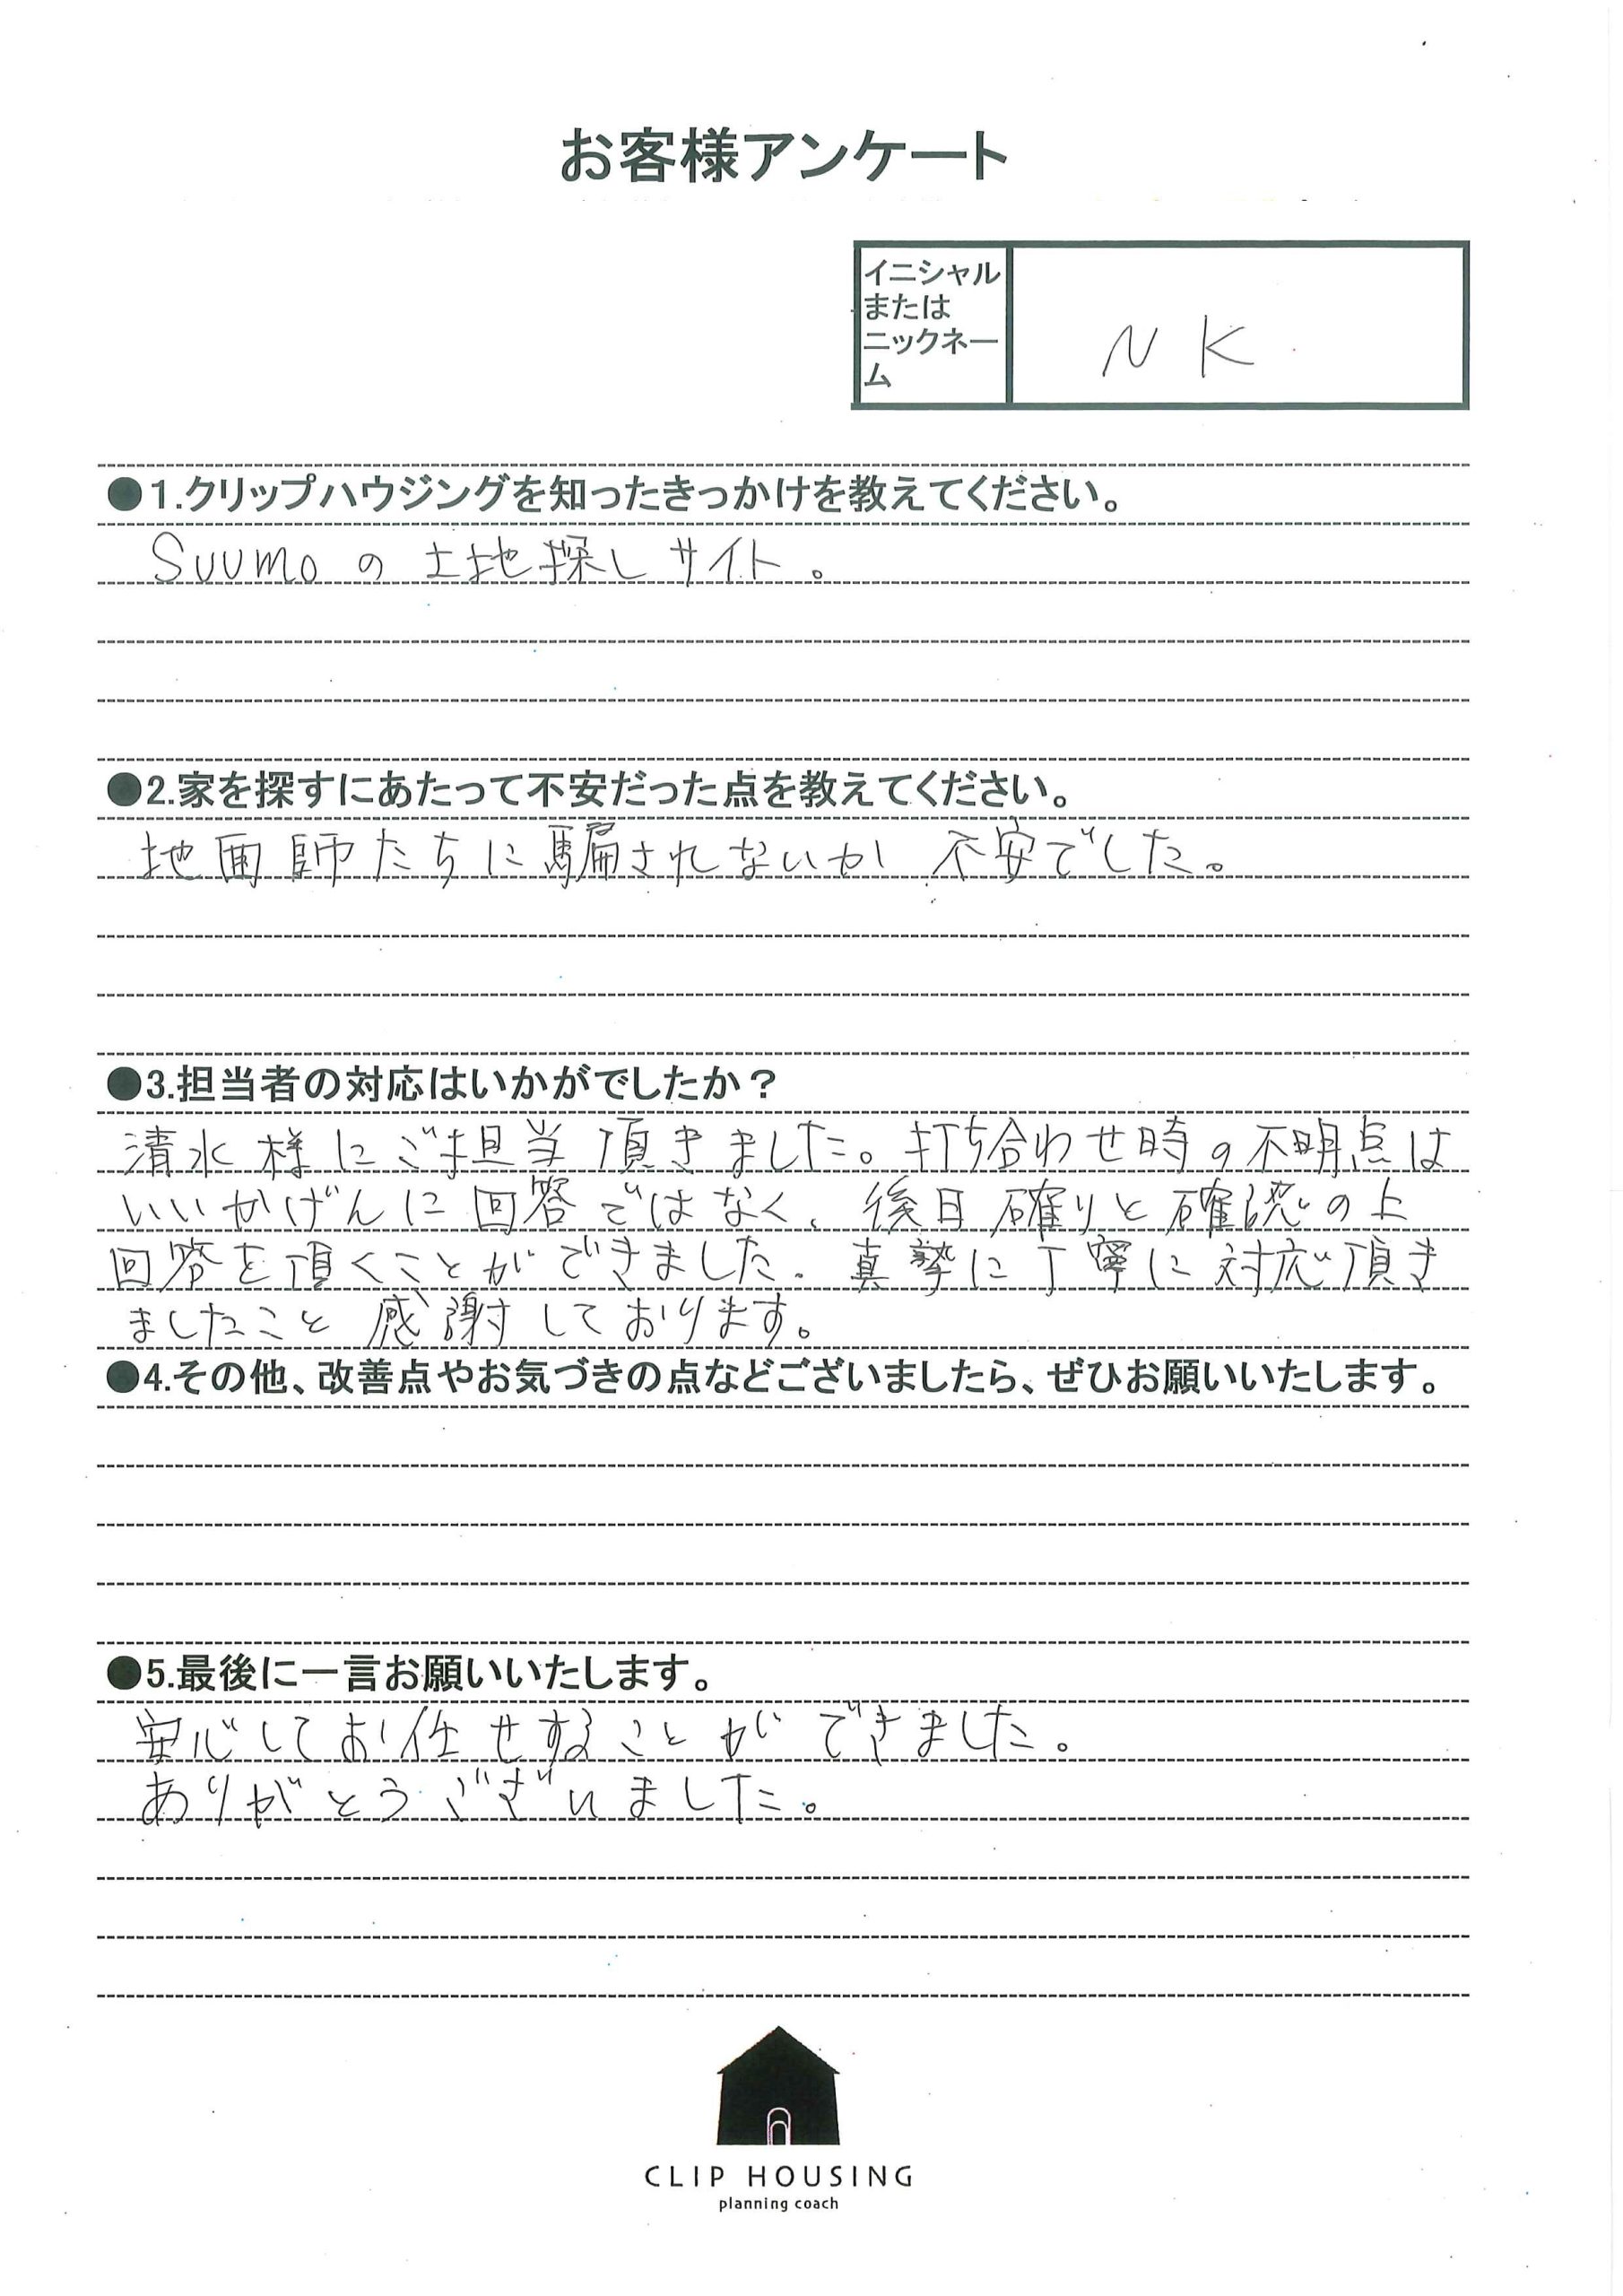 お客様アンケート
イニシャル
または
ニックネー
ム
NK.
●1.クリップハウジングを知ったきっかけを教えてください。
SUUMOの土地探しサイト。
●2.家を探すにあたって不安だった点を教えてください。
地面師たちに騙されないか不安でした。
●3.担当者の対応はいかがでしたか？
清水様にご担当頂きました。打ち合わせ時の不明点は
いいかげんに回答ではなく、後日確りと確認の上
回答を頂くことができました。真摯に丁寧に対応頂き
ましたこと感謝しております。
●4.その他、改善点やお気づきの点などございましたら、ぜひお願いいたします。
●5.最後に一言お願いいたします。
安心してお任せすることができました。
ありがとうございました。
CLIP HOUSING
planning coach